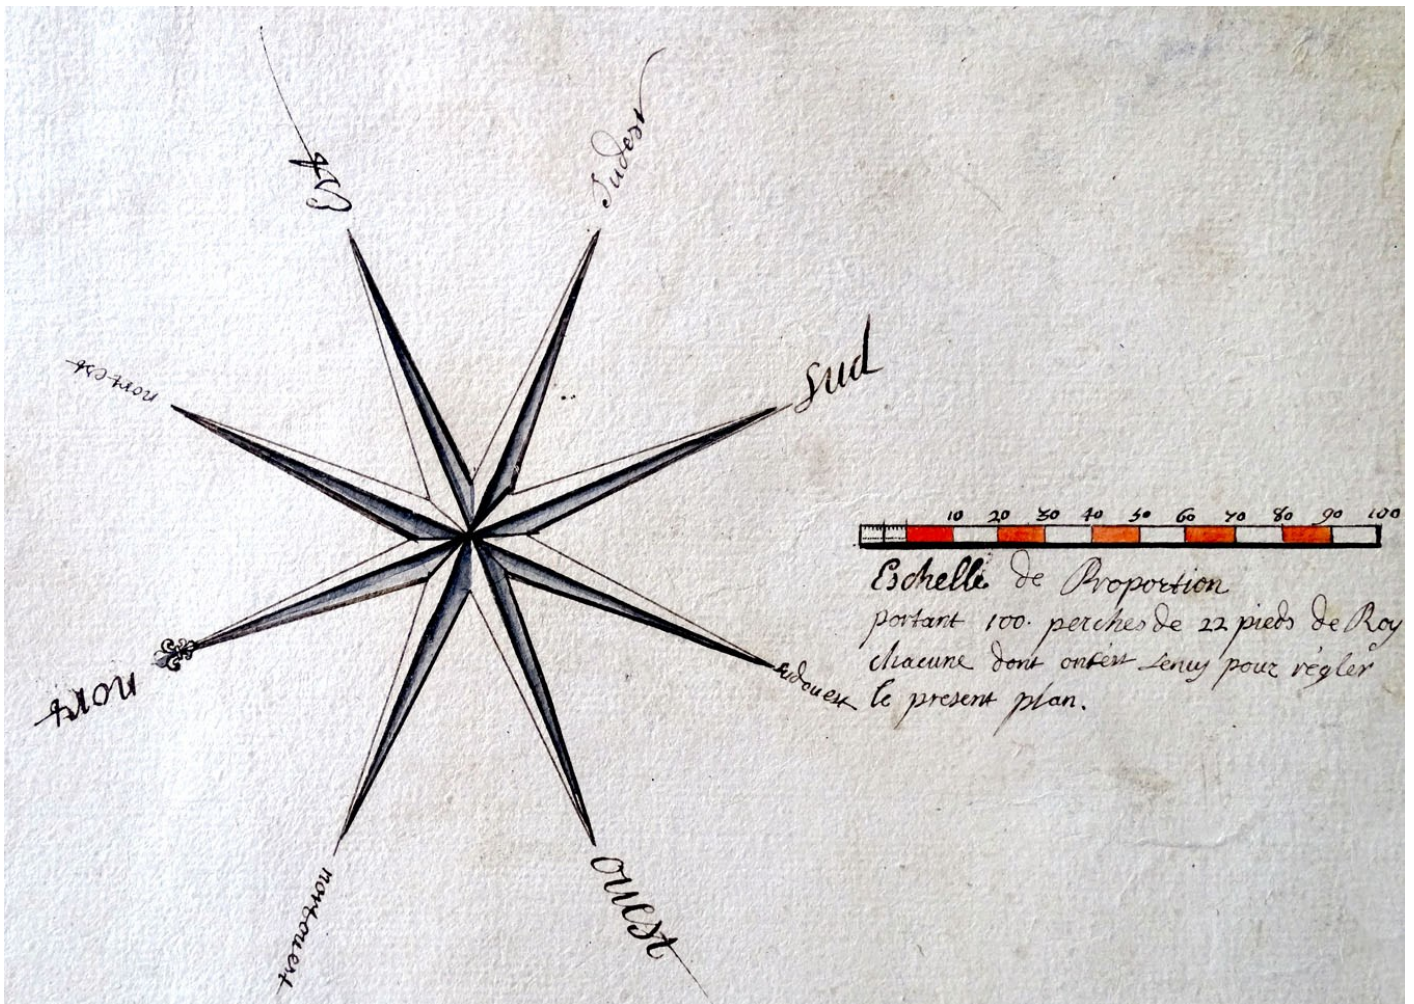 Est
Sudest
Sud
nort est
nort
sudouest
nortouest
ouest
10 20 30 40 50 60 70 80 90 100
Eschelle de Proportion
portant 100. perches de 22 pieds de Roy
chacune dont on sest servy pour régler
le present plan.